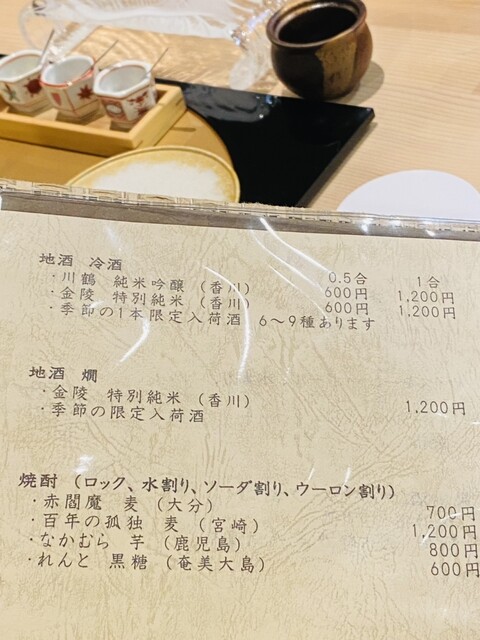 地酒 冷酒 0.5合 1合
・川鶴 純米吟醸 (香川) 600円 1,200円
・金陵 特別純米 (香川) 600円 1,200円
・季節の1本限定入荷酒 6〜9種あります
地酒 燗
・金陵 特別純米 (香川) 1,200円
・季節の限定入荷酒
焼酎 (ロック、水割り、ソーダ割り、ウーロン割り)
・赤閻魔 麦 (大分) 700円
・百年の孤独 麦 (宮崎) 1,200円
・なかむら 芋 (鹿児島) 800円
・れんと 黒糖 (奄美大島) 600円